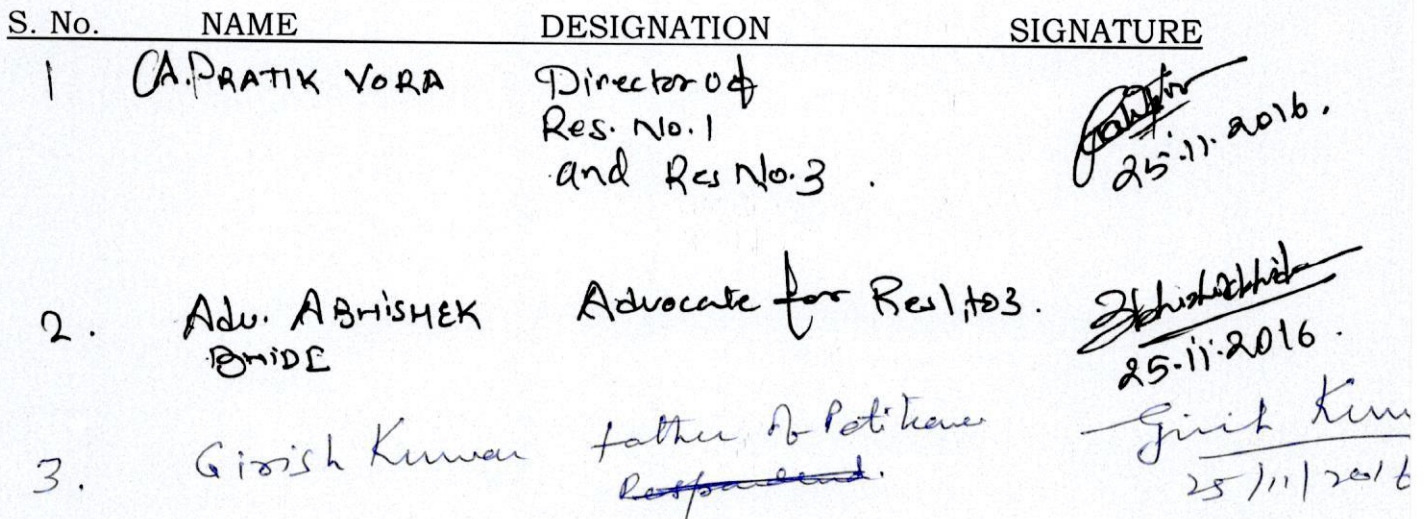 S. No. NAME DESIGNATION SIGNATURE
1 CA. PRATIK VORA Director of
Res. No. 1
and Res No. 3 .
25.11.2016.
2. Adv. ABHISHEK Advocate for Res 1, to 3.
BHIDE
25.11.2016.
3. Girish Kumar father of Petitioner Girish Kum
Respondend.
25/11/2016